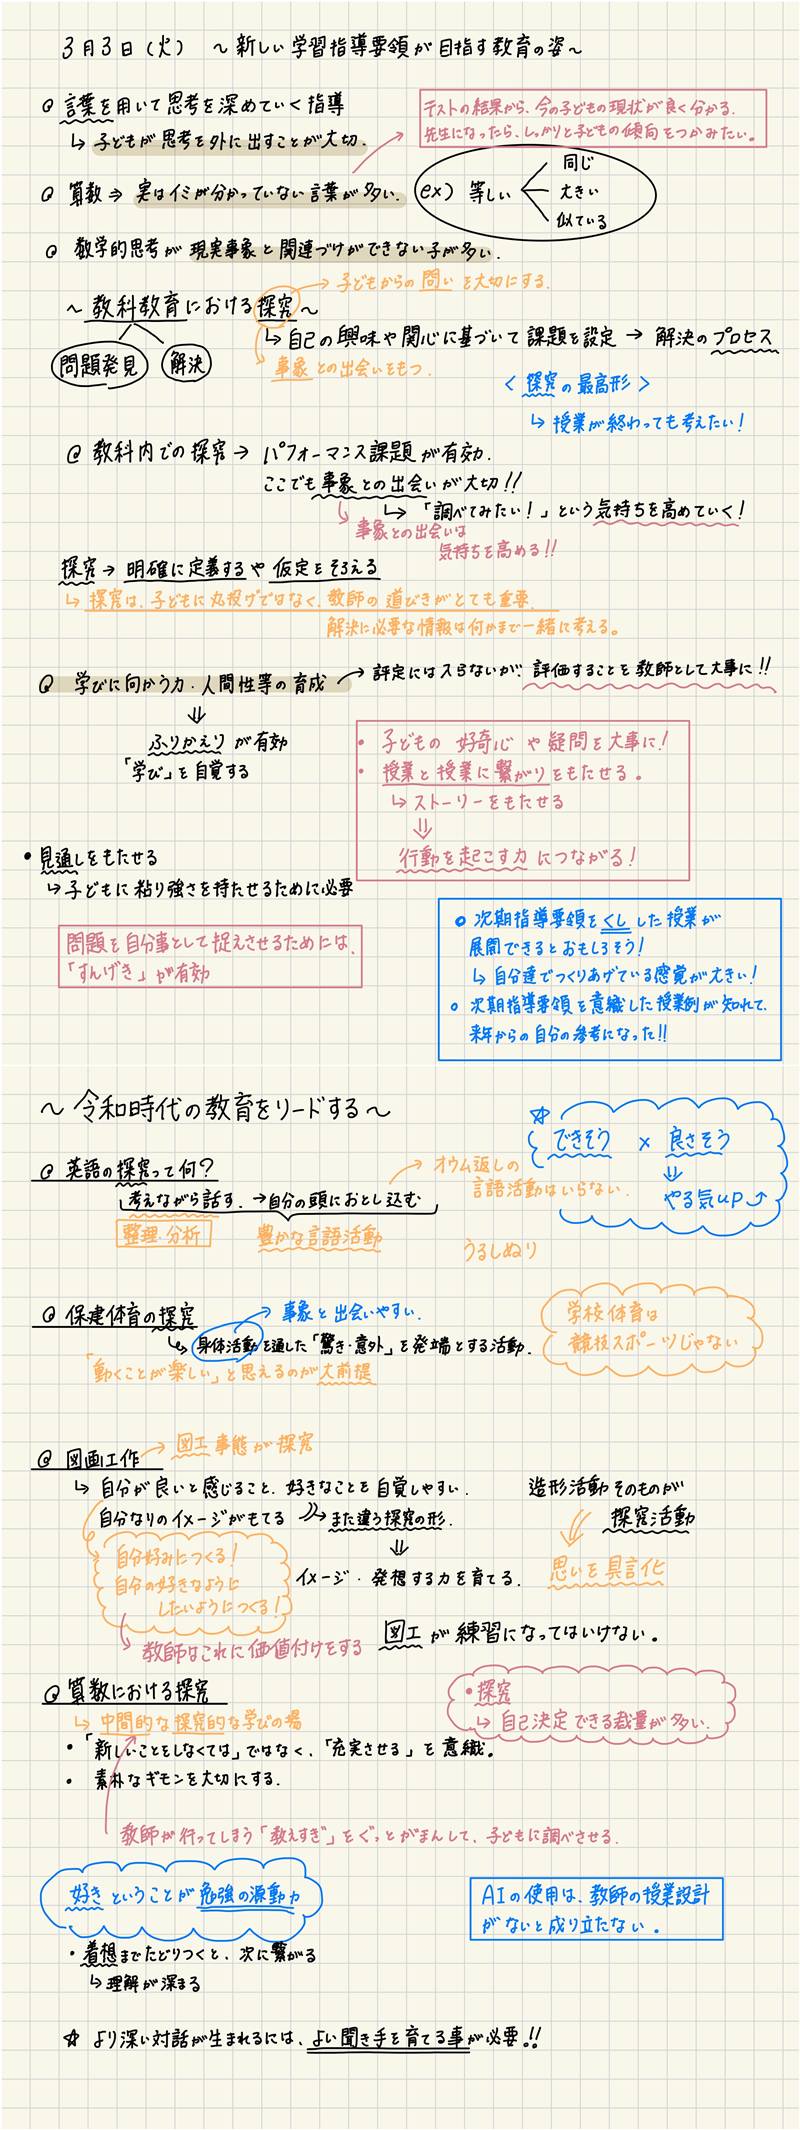 3月3日（火） ～新しい学習指導要領が目指す教育の姿～
◎ 言葉を用いて思考を深めていく指導
↳ 子どもが思考を外に出すことが大切.
テストの結果から、今の子どもの現状が良く分かる.
先生になったら、しっかりと子どもの傾向をつかみたい。
◎ 算数 ⇒ 実はイミが分かっていない言葉が多い.
ex) 等しい
同じ
大きい
似ている
◎ 数学的思考が 現実事象と関連づけができない子が多い.
→ 子どもからの問いを大切にする.
～教科教育における探究～
↳ 自己の興味や関心に基づいて課題を設定 → 解決のプロセス
問題発見 解決
事象との出会いをもつ.
〈 探究の最高形 〉
↳ 授業が終わっても考えたい!
◎ 教科内での探究 → パフォーマンス課題が有効.
ここでも事象との出会いが大切!!
↳ 「調べてみたい!」という気持ちを高めていく!
↳ 事象との出会いは
気持ちを高める!!
探究 → 明確に定義するや仮定をそろえる
↳ 探究は、子どもに丸投げではなく、教師の道びきがとても重要.
解決に必要な情報は何かまで一緒に考える。
◎ 学びに向かう力・人間性等の育成 → 評定には入らないが、評価することを教師として大事に!!
⇓
ふりかえりが有効
「学び」を自覚する
・ 子どもの 好奇心や疑問を大事に!
・ 授業と授業に繋がりをもたせる。
↳ ストーリーをもたせる
⇓
行動を起こす力につながる!
・見通しをもたせる
↳ 子どもに粘り強さを持たせるために必要
問題を自分事として捉えさせるためには、
「すんげき」が有効
○ 次期指導要領をくしした授業が
展開できるとおもしろそう!
↳ 自分達でつくりあげている感覚が大きい!
○ 次期指導要領を意識した授業例が知れて、
来年からの自分の参考になった!!
～令和時代の教育をリードする～
☆ できそう × 良さそう
⇓
やる気up
◎ 英語の探究って何?
考えながら話す. → 自分の頭におとし込む
→ オウム返しの
言語活動はいらない.
整理・分析 豊かな言語活動
うるしぬり
◎ 保健体育の探究 → 事象と出会いやすい.
↳ 身体活動を通した「驚き・意外」を発端とする活動.
「動くことが楽しい」と思えるのが大前提
学校体育は
競技スポーツじゃない
◎ 図画工作 → 図工事態が探究
↳ 自分が良いと感じること、好きなことを自覚しやすい.
自分なりのイメージがもてる → また違う探究の形.
⇓
イメージ・発想する力を育てる.
造形活動そのものが
探究活動
思いを具言化
自分好みにつくる!
自分の好きなように
したいようにつくる!
↳ 教師はこれに価値付けをする
図工が練習になってはいけない。
◎ 算数における探究
↳ 中間的な探究的な学びの場
・探究
↳ 自己決定できる裁量が多い.
・「新しいことをしなくては」ではなく、「充実させる」を意識。
・ 素朴なギモンを大切にする.
教師が行ってしまう「教えすぎ」をぐっとがまんして、子どもに調べさせる.
好きということが勉強の源動力
AIの使用は、教師の授業設計
がないと成り立たない。
・着想までたどりつくと、次に繋がる
↳ 理解が深まる
☆ より深い対話が生まれるには、よい聞き手を育てる事が必要!!